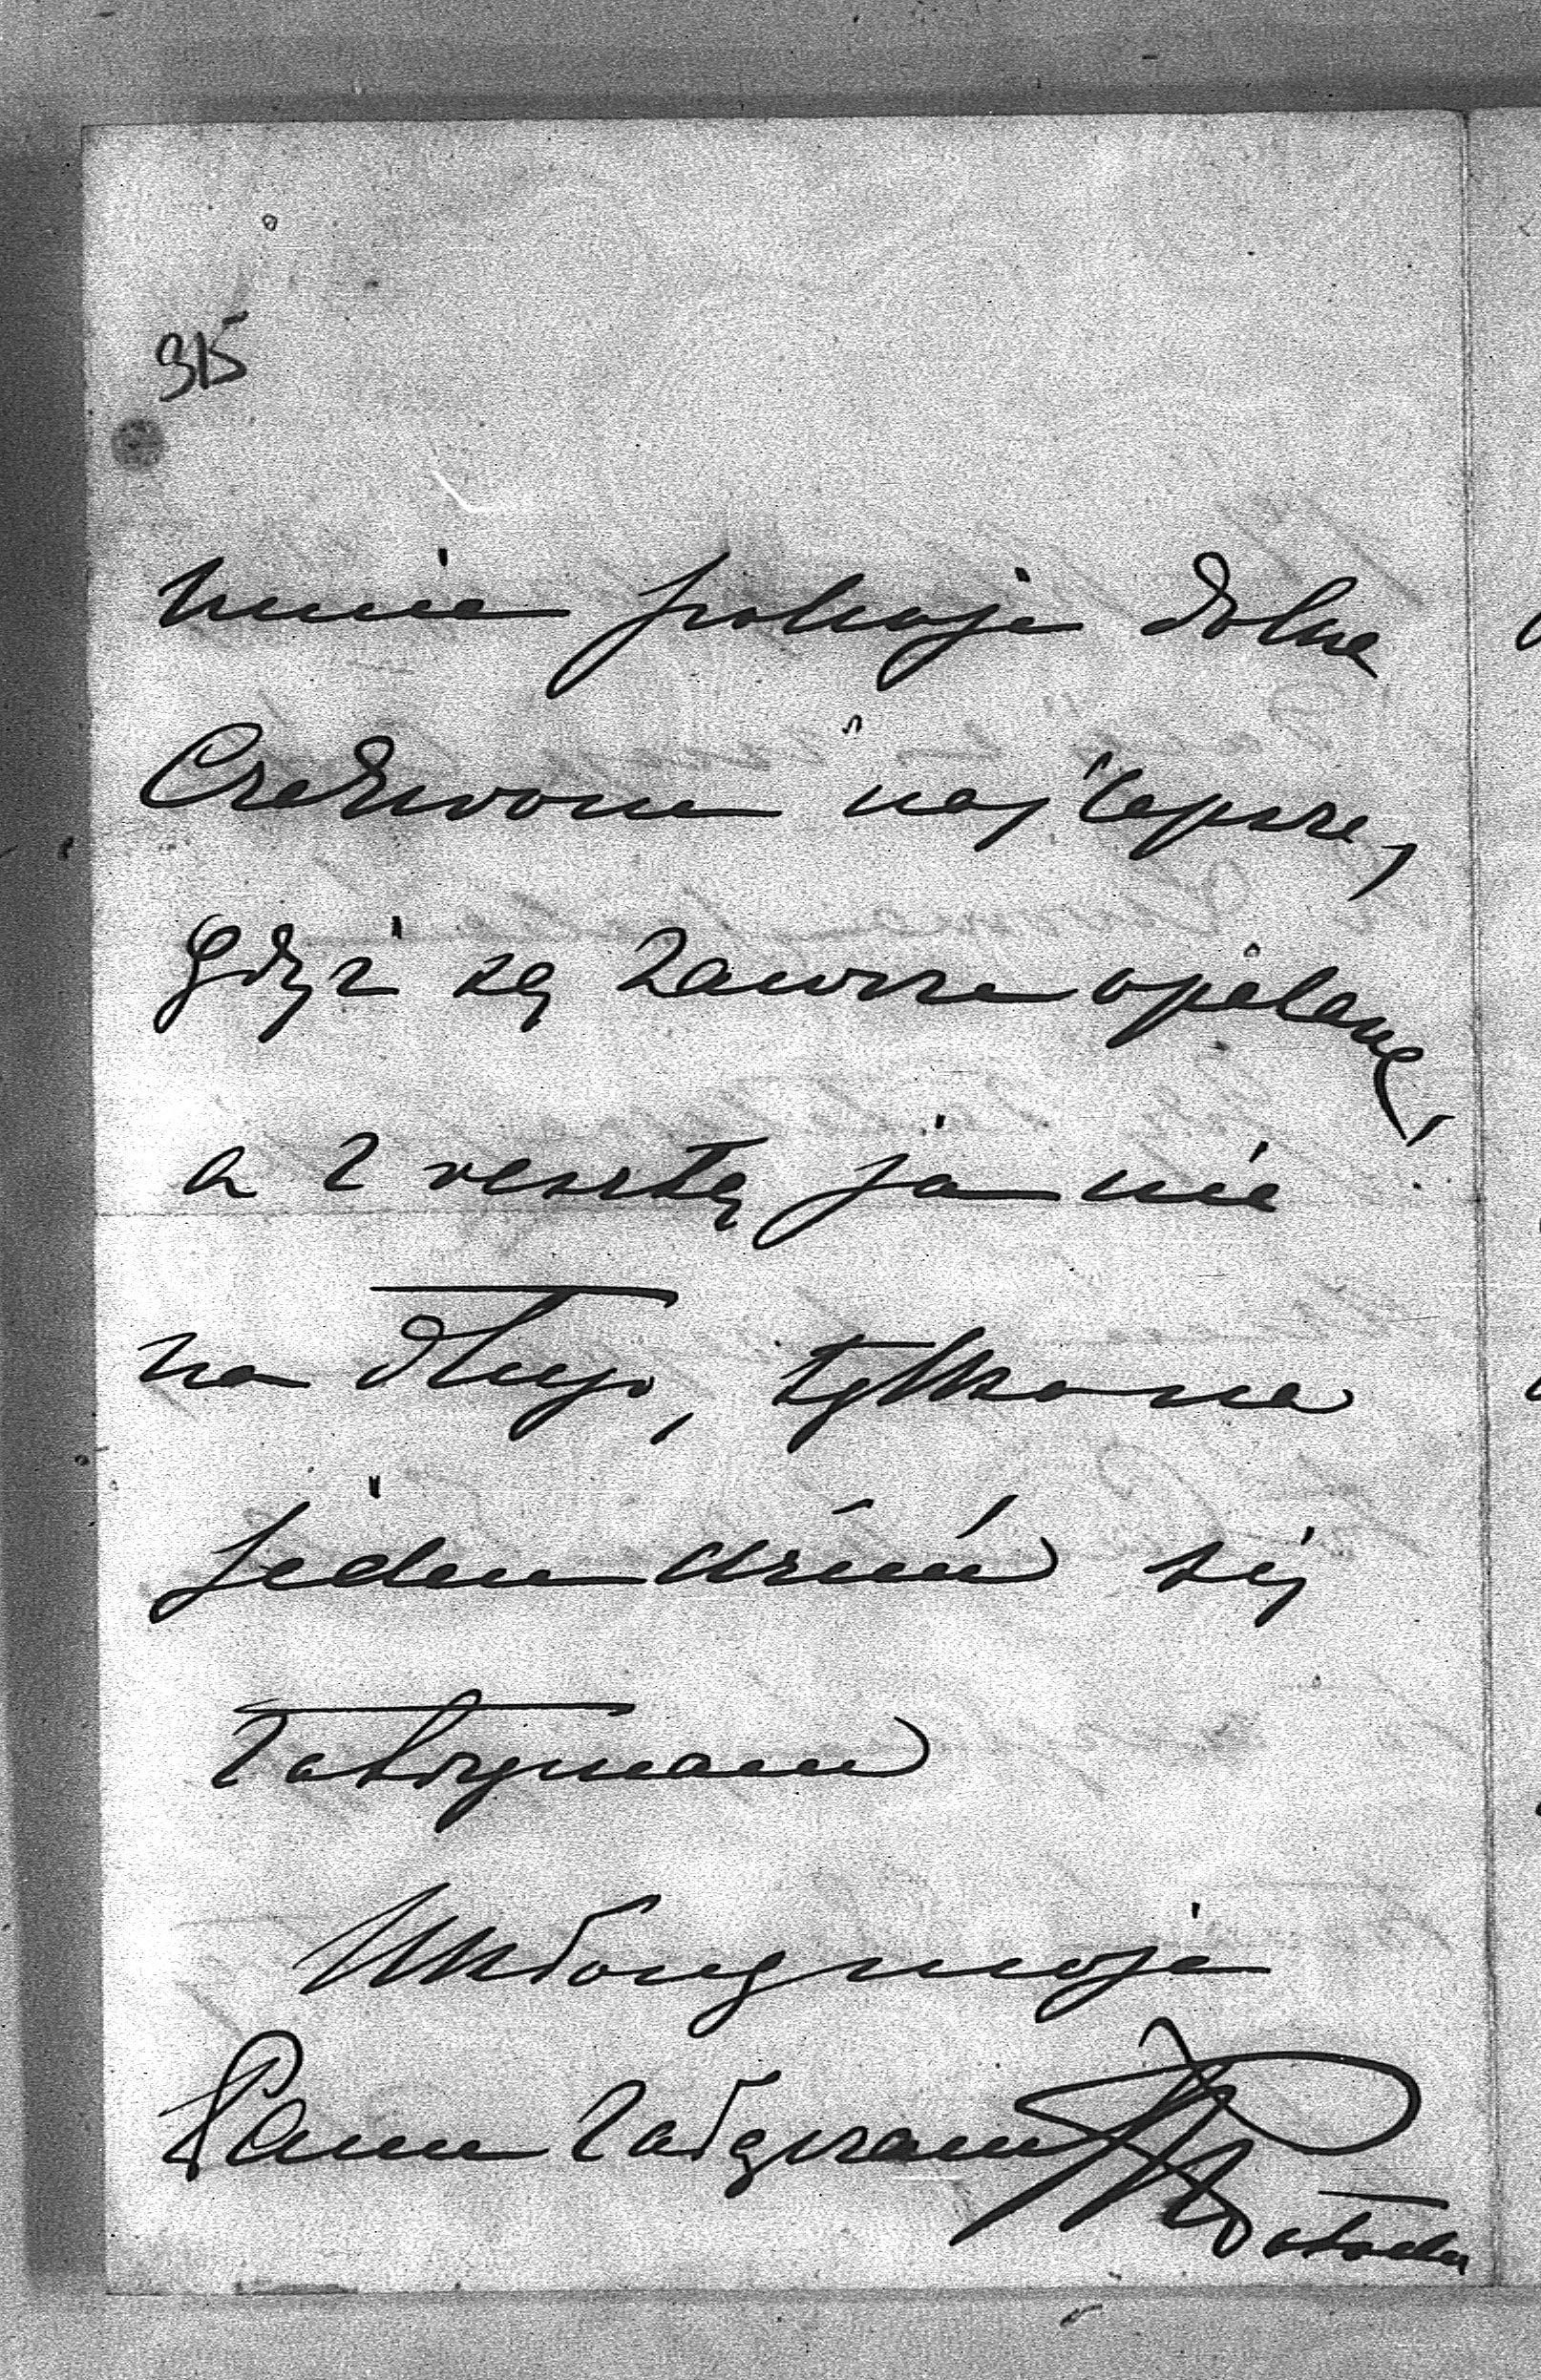 315
mnie pokoje dolne
Czerwone najlepsze,
gdyż są zawsze opalane,
a z resztą ja nie
na długo, tylko na
jeden dzień się
zatrzymam
Ukłony moje
Panu załączam